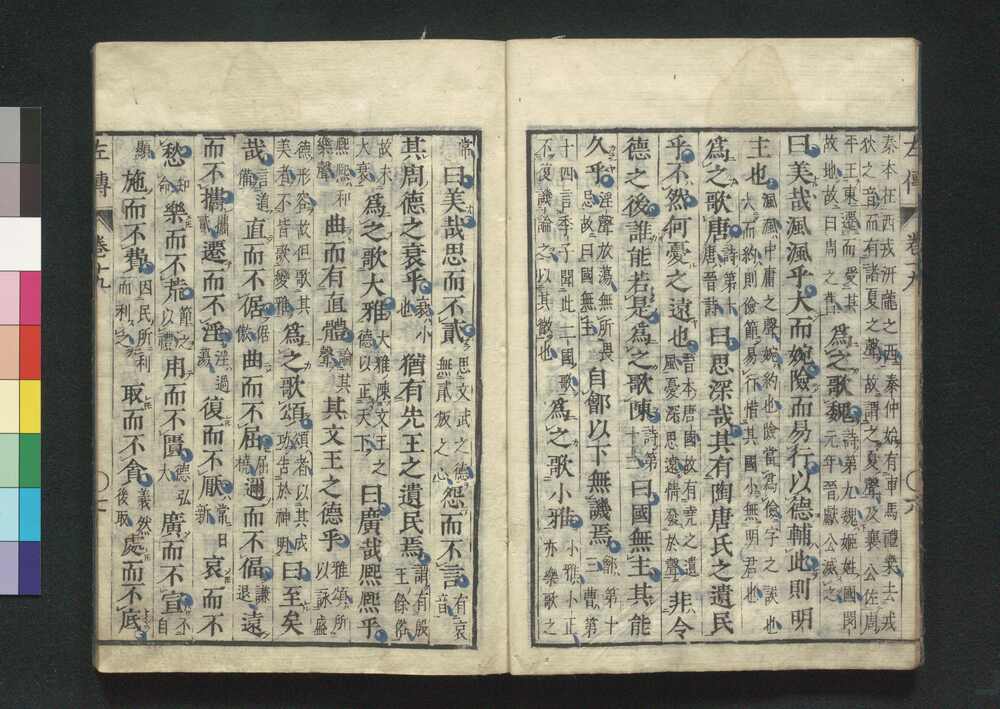 左傳 卷九 六
秦本在西戎汧隴之西秦仲始有車馬禮樂去戎
狄之音而有諸夏之聲故謂之夏聲及襄公佐周
平王東遷而受其故地故曰周之舊爲之歌魏詩第九魏姬姓國閔元年晉獻公滅之
曰美哉渢渢乎大而婉險而易行以德輔此則明
主也渢渢中庸之聲婉約也險當爲儉字之誤也大而約則儉節易行惜其國小無明君也
爲之歌唐詩第十唐晉詩曰思深哉其有陶唐氏之遺民
乎不然何憂之遠也晉本唐國故有堯之遺風憂深思遠情發於聲非令
德之後誰能若是爲之歌陳詩第十二曰國無主其能
久乎淫聲放蕩無所畏忌故曰國無主自鄶以下無譏焉鄶第十三曹第
十四言季子聞此二國歌不復譏論之以其微也爲之歌小雅小雅小正亦樂歌之
常曰美哉思而不貳思文武之德無貳叛之心怨而不言有哀音
其周德之衰乎衰小也猶有先王之遺民焉謂有殷王餘俗
故未大衰爲之歌大雅大雅陳文王之德以正天下曰廣哉熙熙乎
熙熙和樂聲曲而有直體論其聲其文王之德乎雅頌所以詠盛
德形容故但歌其美者不皆歌變雅爲之歌頌頌者以其成功告於神明曰至矣
哉言道備直而不倨倨傲曲而不屈屈撓邇而不偪謙退遠
而不攜攜貳遷而不淫淫過蕩復而不厭常日新哀而不
愁知命樂而不荒節之以禮用而不匱德弘大廣而不宣不自
顯施而不費因民所利而利之取而不貪義然後取處而不底
左傳 卷九